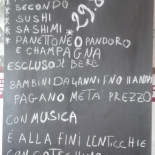 * SECONDO
* SUSHI
SASHIMI
* PANETTONE O PANDORO
E CHAMPAGNA
ESCLUSO IL BERE
BAMBINI DA 4 ANNI FINO 11 ANNI
PAGANO METÀ PREZZO
CON MUSICA
E ALLA FINI LENTICCHIE
CON COTECHINO